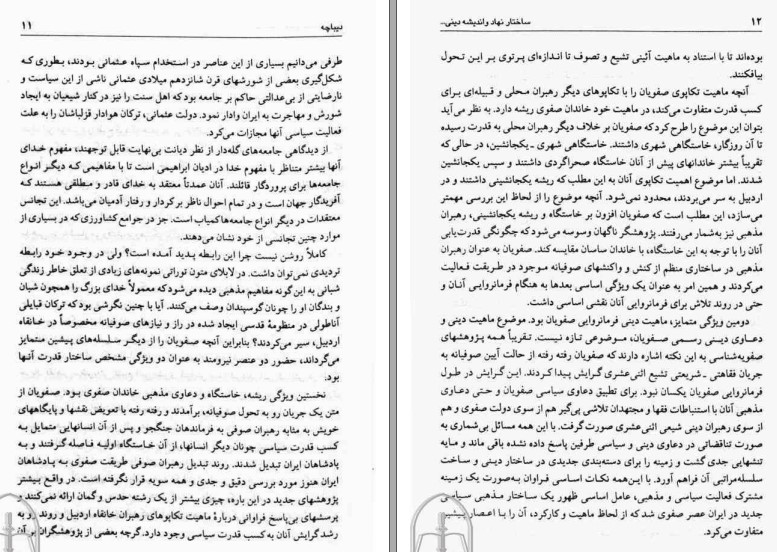 ۱۲
ساختار نهاد و اندیشه دینی...
بوده‌اند تا با استناد به ماهیت آئینی تشیع و تصوف تا اندازه‌ای پرتوی بر این تحول
بیافکنند.
آنچه ماهیت تکاپوی صفویان را با تکاپوهای دیگر رهبران محلی و قبیله‌ای برای
کسب قدرت متفاوت می‌کند، در ماهیت خود خاندان صفوی ریشه دارد. به نظر می‌آید
بتوان این موضوع را طرح کرد که صفویان بر خلاف دیگر رهبران محلی به قدرت رسیده
تا آن روزگار، خاستگاهی شهری داشتند. خاستگاهی شهری ـ یکجانشین، در حالی که
تقریباً بیشتر خاندانهای پیش از آنان خاستگاه صحراگردی داشتند و سپس یکجانشین
شدند. اما موضوع اهمیت تکاپوی آنان به این مطلب که ریشه یکجانشینی داشتند و در
اردبیل به سر می‌بردند، محدود نمی‌شود. آنچه موضوع را از لحاظ این بررسی مهمتر
می‌سازد، این مطلب است که صفویان افزون بر خاستگاه و ریشه یکجانشینی، رهبران
مذهبی نیز به‌شمار می‌رفتند. پژوهشگر ناگهان وسوسه می‌شود که چگونگی قدرت‌یابی
آنان را با توجه به این خاستگاه، با خاندان ساسان مقایسه کند. صفویان به عنوان رهبران
مذهبی در ساختاری منظم از کنش و واکنشهای صوفیانه موجود در طریقت فعالیت
می‌کردند و همین امر به عنوان یک ویژگی اساسی بعدها به هنگام فرمانروایی آنان و
حتی در روند تلاش برای فرمانروایی آنان نقشی اساسی داشت.
دومین ویژگی متمایز، ماهیت دینی فرمانروایی صفویان بود. موضوع ماهیت دینی و
دعاوی دینی رسمی صفویان، موضوعی تازه نیست. تقریباً همه پژوهشهای
صفویه‌شناسی به این نکته اشاره دارند که صفویان رفته رفته از حالت آیین صوفیانه به
جریان فقاهتی ـ شریعتی تشیع اثنی‌عشری گرایش پیدا کردند. این گرایش در طول
فرمانروایی صفویان یکسان نبود. برای تطبیق دعاوی سیاسی صفویان و حتی دعاوی
مذهبی آنان با استنباطات فقها و مجتهدان تلاشی پی‌گیر هم از سوی دولت صفوی و هم
از سوی رهبران دینی شیعی اثنی‌عشری صورت گرفت. با این همه مسائل بی‌شماری به
صورت تناقضاتی در دعاوی دینی و سیاسی طرفین پاسخ داده نشده باقی ماند و مایه
تنشهایی جدی گشت و زمینه را برای دسته‌بندی جدیدی در ساختار دینی و ساخت
سلسله‌مراتبی آن فراهم آورد. با این‌همه نکات اساسی فراوان به‌صورت یک زمینه
مشترک فعالیت سیاسی و مذهبی، عامل اساسی ظهور یک ساختار مذهبی سیاسی
جدید در ایران عصر صفوی شد که از لحاظ ماهیت و کارکرد، آن را با اعصار پیشین
متفاوت می‌کرد.
دیباچه
۱۱
طرفی می‌دانیم بسیاری از این عناصر در استخدام سپاه عثمانی بودند، بطوری که
شکل‌گیری بعضی از شورشهای قرن شانزدهم میلادی عثمانی ناشی از این سیاست و
نارضایتی از بی‌عدالتی حاکم بر جامعه بود که اهل سنت را نیز در کنار شیعیان به ایجاد
شورش و مهاجرت به ایران وادار نمود. دولت عثمانی، ترکان هوادار قزلباشان را به علت
فعالیت سیاسی آنها مجازات می‌کرد.
از دیدگاهی جامعه‌های گله‌دار از نظر دیانت بی‌نهایت قابل توجهند، مفهوم خدای
آنها بیشتر متناظر با مفهوم خدا در ادیان ابراهیمی است تا با مفاهیمی که دیگر انواع
جامعه‌ها برای پروردگار قائلند. آنان عمدتاً معتقد به خدای قادر و مطلقی هستند که
آفریدگار جهان است و در تمام احوال ناظر بر کردار و رفتار آدمیان می‌باشد. این تجانس
معتقدات در دیگر انواع جامعه‌ها کمیاب است. جز در جوامع کشاورزی که در بسیاری از
موارد چنین تجانسی از خود نشان می‌دهند.
کاملاً روشن نیست چرا این رابطه پدید آمده است؟ ولی در وجود خود رابطه
تردیدی نمی‌توان داشت. در لابلای متون توراتی نمونه‌های زیادی از تعلق خاطر زندگی
شبانی به این‌گونه مفاهیم مذهبی دیده می‌شود که معمولاً خدای بزرگ را همچون شبان
و بندگان او را چونان گوسپندان وصف می‌کنند. آیا با چنین نگرشی بود که ترکان قبایلی
آناطولی در منظومهٔ قدسی ایجاد شده در راز و نیازهای صوفیانه مخصوصاً در خانقاه
اردبیل، سیر می‌کردند؟ بنابراین آنچه صفویان را از دیگر سلسله‌های پیشین متمایز
می‌گرداند، حضور دو عنصر نیرومند به عنوان دو ویژگی مشخص ساختار قدرت آنها
بود.
نخستین ویژگی ریشه، خاستگاه و دعاوی مذهبی خاندان صفوی بود. صفویان از
متن یک جریان رو به تحول صوفیانه، برآمدند و رفته رفته با تعویض نقشها و پایگاههای
خویش به مثابه رهبران صوفی به فرماندهان جنگجو و پس از آن انسانهایی متمایل به
کسب قدرت سیاسی چونان دیگر انسانها، از آن خاستگاه اولیه فاصله گرفتند و به
پادشاهان ایران تبدیل شدند. روند تبدیل رهبران صوفی طریقت صفوی به پادشاهان
ایران هنوز مورد بررسی دقیق و جدی و همه سویه قرار نگرفته است. در واقع بیشتر
پژوهشهای جدید در این باره، چیزی بیشتر از یک رشته حدس و گمان ارائه نمی‌کنند و
پرسشهای بی‌پاسخ فراوانی دربارهٔ ماهیت تکاپوهای رهبران خانقاه اردبیل و روند رو به
رشد گرایش آنان به کسب قدرت سیاسی وجود دارد. گرچه بعضی از پژوهشگران بر آن